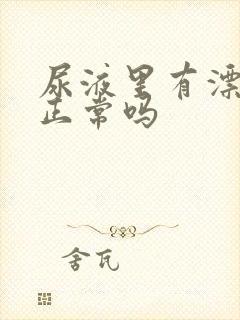 尿液里有漂
正常吗
舍瓦